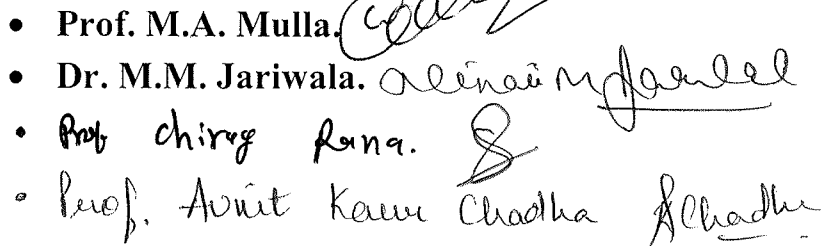 • Prof. M.A. Mulla.
• Dr. M.M. Jariwala.
• Prof Chirag Rana.
• Prof. Avnit Kaur Chadha AChadha